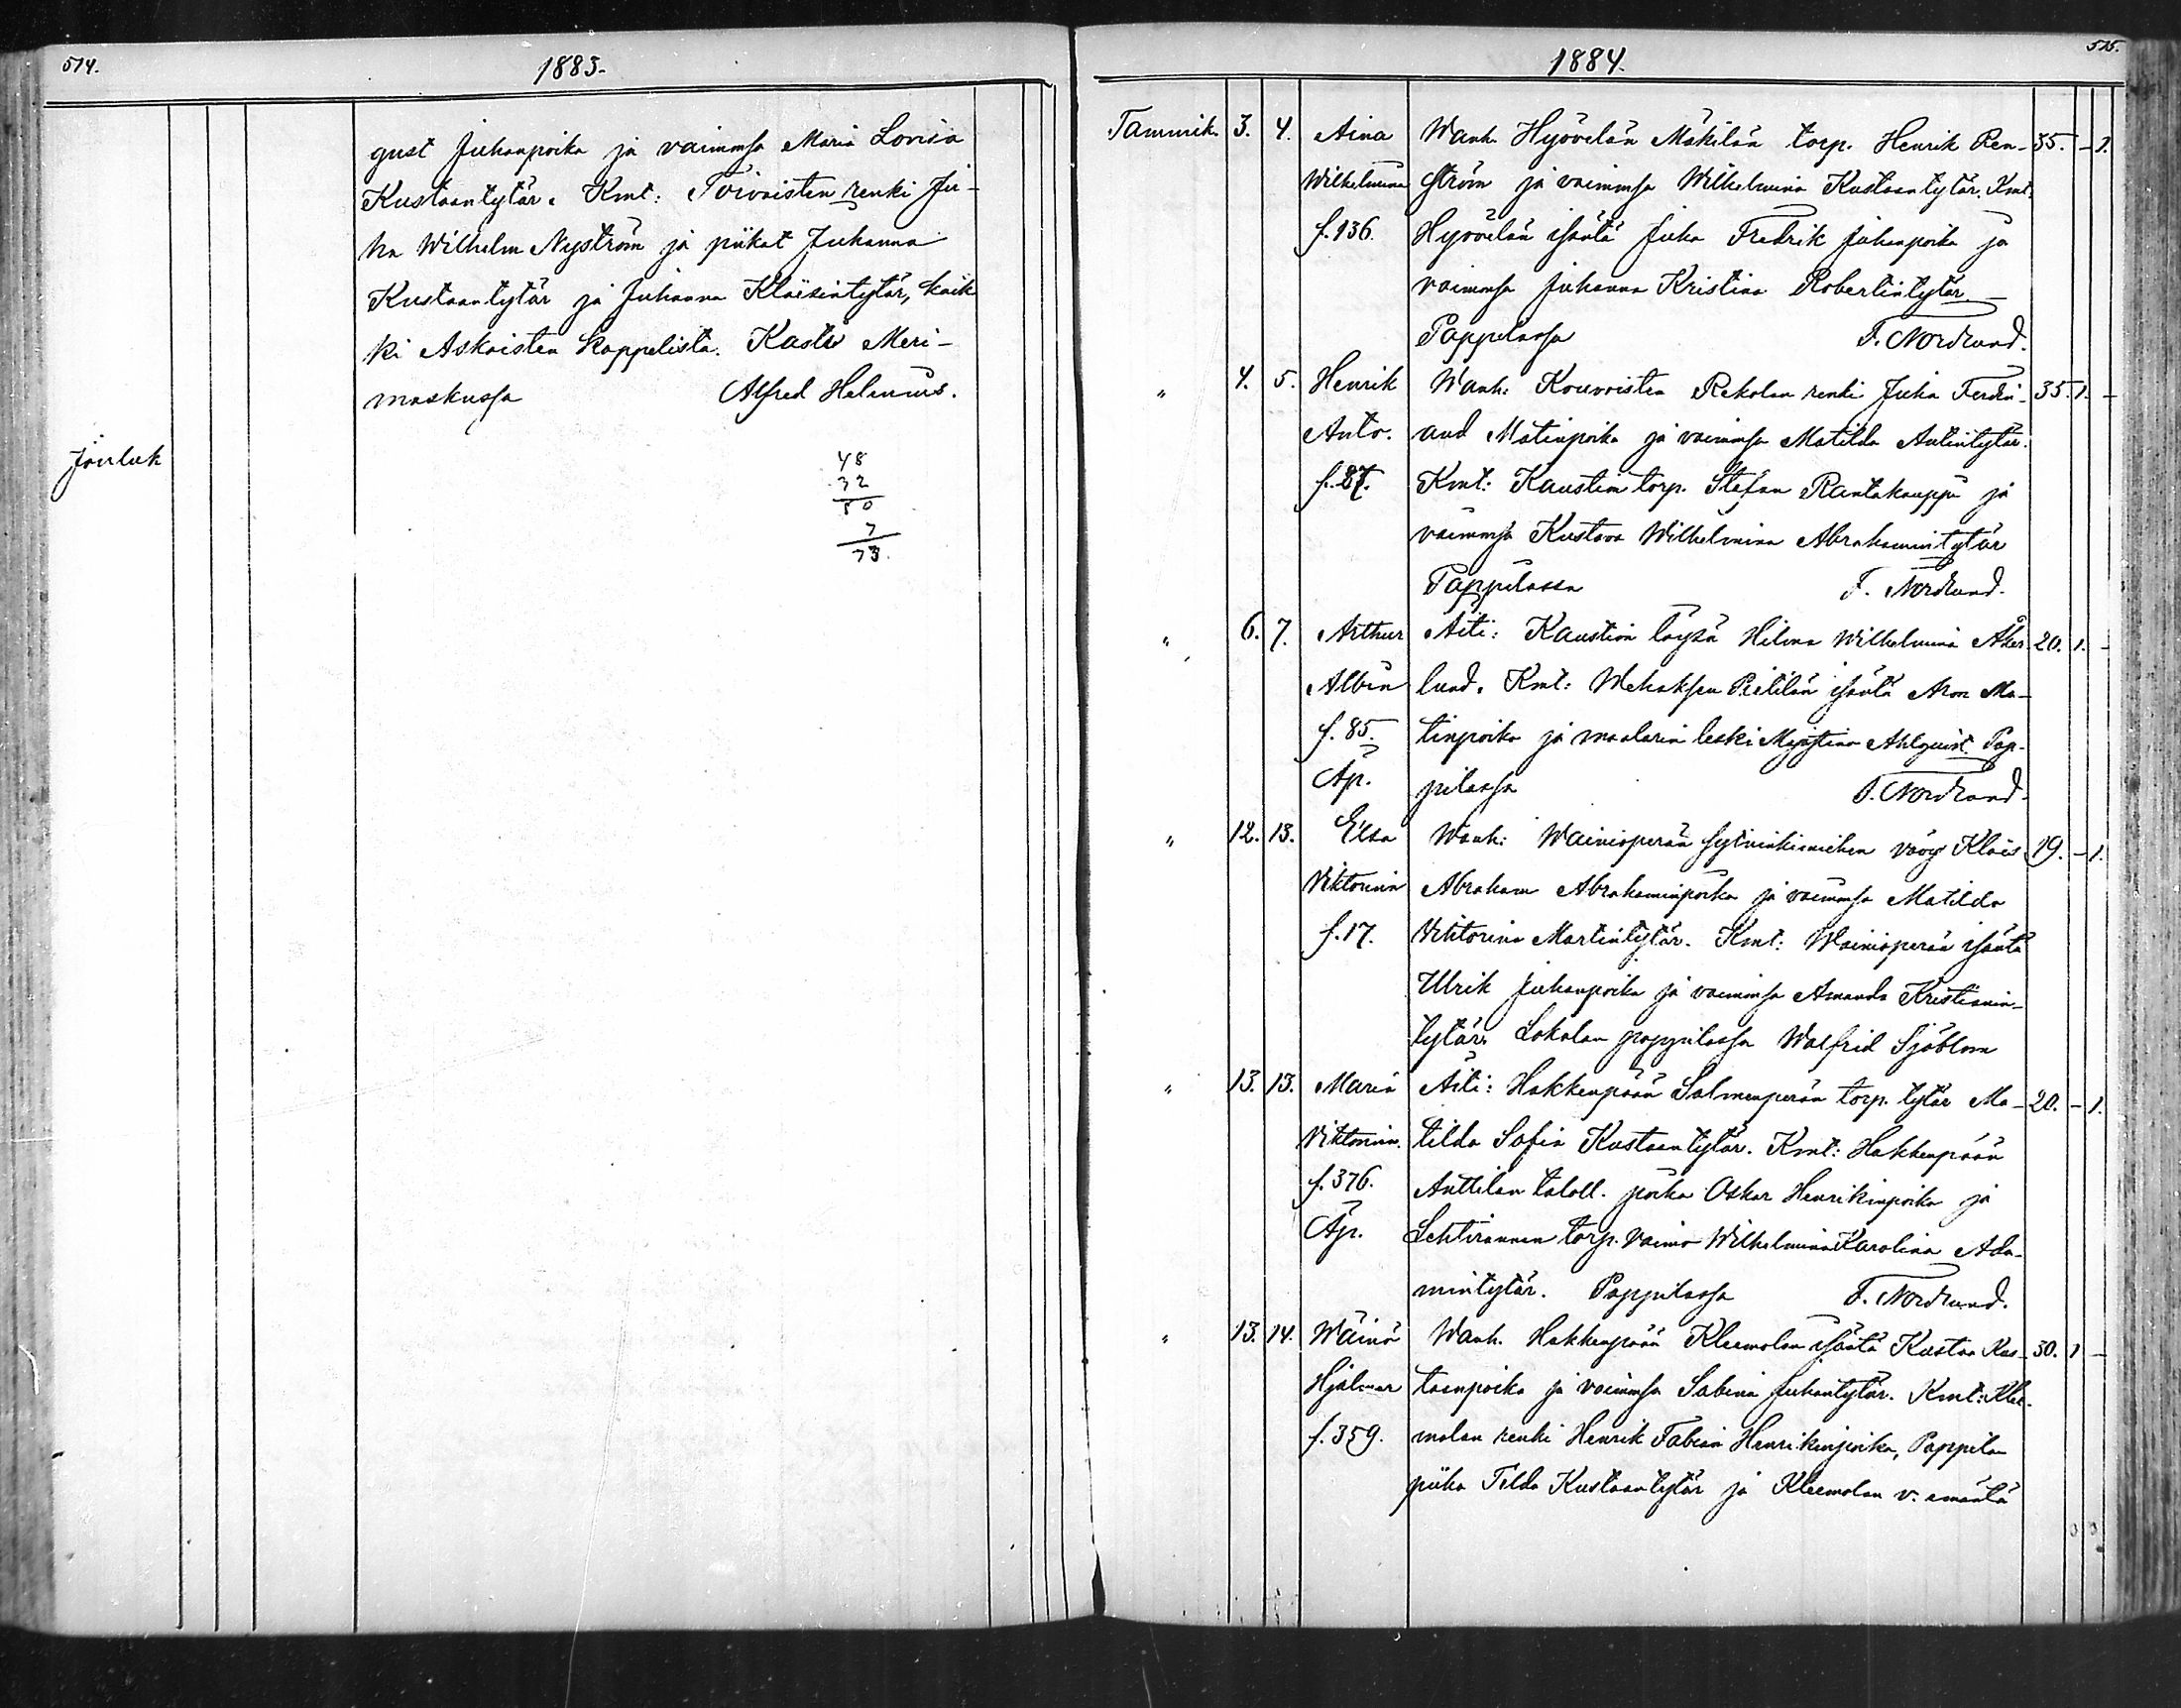 514.
1883.
gust Juhanpoika ja vaimonsa Maria Lovisa
Kustaantytär. Kmt: Toivoisten renki Ju-
ha Wilhelm Nyström ja piikat Juhanna
Kustaantytär ja Juhanna Klaësintytär, kaik
ki Askaisten kappelista. Kaste Meri-
maskussa Alfred Helenius.
Jouluk
48
32
50
7
73.
515.
1884.
Tammik. 3. 4. Aina Wanh. Hyövelän Mäkilän torp. Henrik Ren- 35. - 1.
Wilhelmina ström ja vaimonsa Wilhelmina Kustaantytär. Kmt:
f. 136. Hyövelän isäntä Juha Fredrik Juhanpoika ja
vaimonsa Juhanna Kristina Robertintytär
Pappilassa F. Nordlund.
" 4. 5. Henrik Wanh: Kouvoisten Rekolan renki Juha Ferdin- 35. 1. -
Anto. and Matinpoika ja vaimonsa Matilda Antintytär.
f. 87. Kmt: Kaustion torp. Stefan Rantakauppi ja
vaimonsa Kustava Wilhelmina Abrahamintytär
Pappilassa F. Nordlund.
" 6. 7. Arthur Äiti: Kaustion löysä Hilma Wilhelmina Åker- 20. 1. -
Albin lund. Kmt: Mehaksen Pietilän isäntä Aron Ma-
f. 85. tinpoika ja maalarin leski Majastina Ahlquist. Pap-
Äp. pilassa F. Nordlund.
" 12. 13. Elsa Wanh: Wainioperän hytninkimiehen väöy Klaës 19. - 1.
Viktoriia Abraham Abrahaminpoika ja vaimonsa Matilda
f. 17. Viktoriina Martintytär. Kmt: Wainioperän isäntä
Ulrik Juhanpoika ja vaimonsa Amanda Kristianin-
tytär. Lokalan pappilassa Walfrid Sjöblom
" 13. 13. Maria Äiti: Hakkenpään Salmenperän torp. tytär Ma- 20. - 1.
Viktoriia. tilda Sofia Kustaantytär. Kmt: Hakkenpään
f. 376. Anttilan taloll. poika Oskar Henrikinpoika ja
Äp. Lehtirannan torp. vaimo Wilhelmina Karolina Ada-
mintytär. Pappilassa F. Nordlund.
" 13. 14. Wäinö Wanh. Hakkenpään Kleemolan isäntä Kustaa Kus- 30. 1 -
Hjalmar taanpoika ja vaimonsa Sabina Juhantytär. Kmt: Klee-
f. 359. molan renki Henrik Fabian Henrikinpoika, Pappilan
piika Tilda Kustaantytär ja Kleemolan v. emäntä